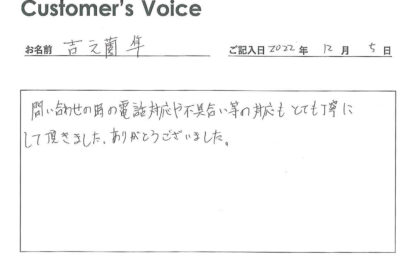 Customer's Voice
お名前 吉之薗 隼 ご記入日 2022 年 12 月 5 日
問い合わせの時の電話対応や不具合い等の対応も とても丁寧に
して頂きました。ありがとうございました。